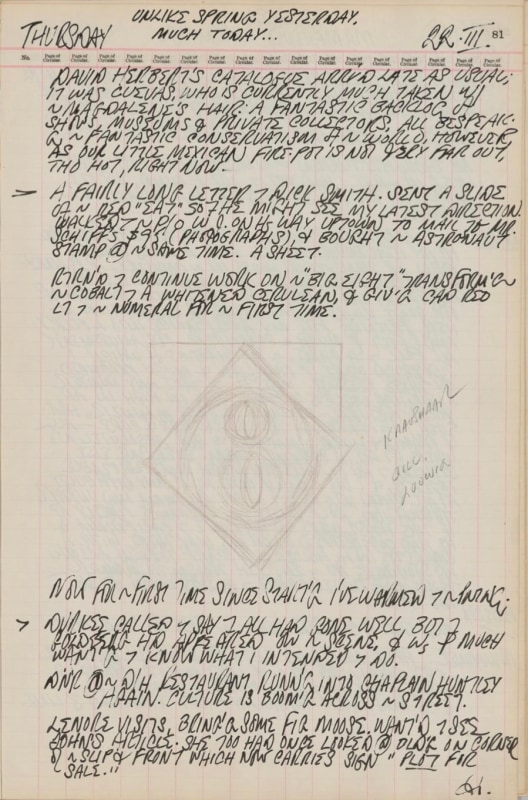 UNLIKE SPRING YESTERDAY.
THURSDAY MUCH TODAY... 22. III. 81
No. Page of Circular. Page of Circular. Page of Circular. Page of Circular. Page of Circular. Page of Circular. Page of Circular. Page of Circular. Page of Circular. Page of Circular. Page of Circular. Page of Circular.
DAVID HERBERT'S CATALOGUE ARRIV'D LATE AS USUAL;
IT WAS CUEVAS, WHO IS CURRENTLY MUCH TAKEN W/
~ MAGDALENE'S HAIR. A FANTASTIC BACKLOG OF
SHOWS, MUSEUMS & PRIVATE COLLECTORS, ALL BESPEAK-
~ FANTASTIC CONSERVATISM ~ WORLD, HOWEVER
AS OUR LITTLE MEXICAN FIRE-POT IS NOT VERY FAR OUT,
THO HOT, RIGHT NOW.
> A FAIRLY LONG LETTER 7 DICK SMITH. SENT A SLIDE
OF ~ RED "EAT" SO HE MIGHT SEE MY LATEST DIRECTION
WALKED 7 P.O. W. ON ~ WAY UPTOWN TO MAIL TO MR.
$9 (PHOTOGRAPHS), & BOUGHT ~ ASTRONAUT
STAMP @ ~ SAME TIME. A SHEET.
RTRN'D 7 CONTINUE WORK ON ~ "BIG EIGHT" TRANSFORM'G
~ COBALT 7 A WHITENED CERULEAN, & GIV'G CAD RED
LT 7 ~ NUMERAL FOR ~ FIRST TIME.
KRAUSHAAR
BILL
LUDWIG
NOW FOR ~ FIRST TIME SINCE START'G I'VE WARMED 7 ~ PNTNG;
> DURKEE CALLED 7 SAY 7 ALL HAD GONE WELL, BOT 7
HD APPEARED ON ~ SCENE, & W, MUCH
WANT'G 7 KNOW WHAT I INTENDED 7 DO.
DNR @ ~ D/H RESTAURANT RUNN'G INTO CHAPLAIN HUNTLEY
AGAIN. CULTURE IS BOOM'G ACROSS ~ STREET.
LENORE VISITS, BRING'G SOME FIR MOOSE. WANT'D 7 SEE
JOHN'S ARTICLE. SHE TOO HAD ONCE LOOKED @ BLD'G ON CORNER
OF ~ SLIP & FRONT WHICH NOW CARRIES SIGN "PLOT FOR
SALE."